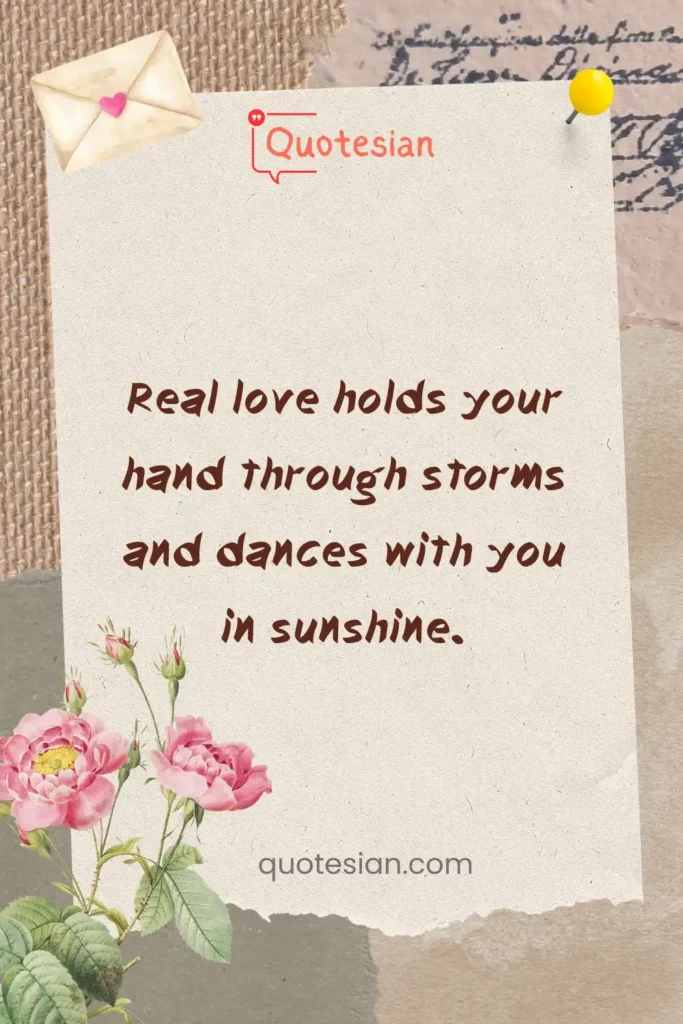 Quotesian
Real love holds your
hand through storms
and dances with you
in sunshine.
quotesian.com